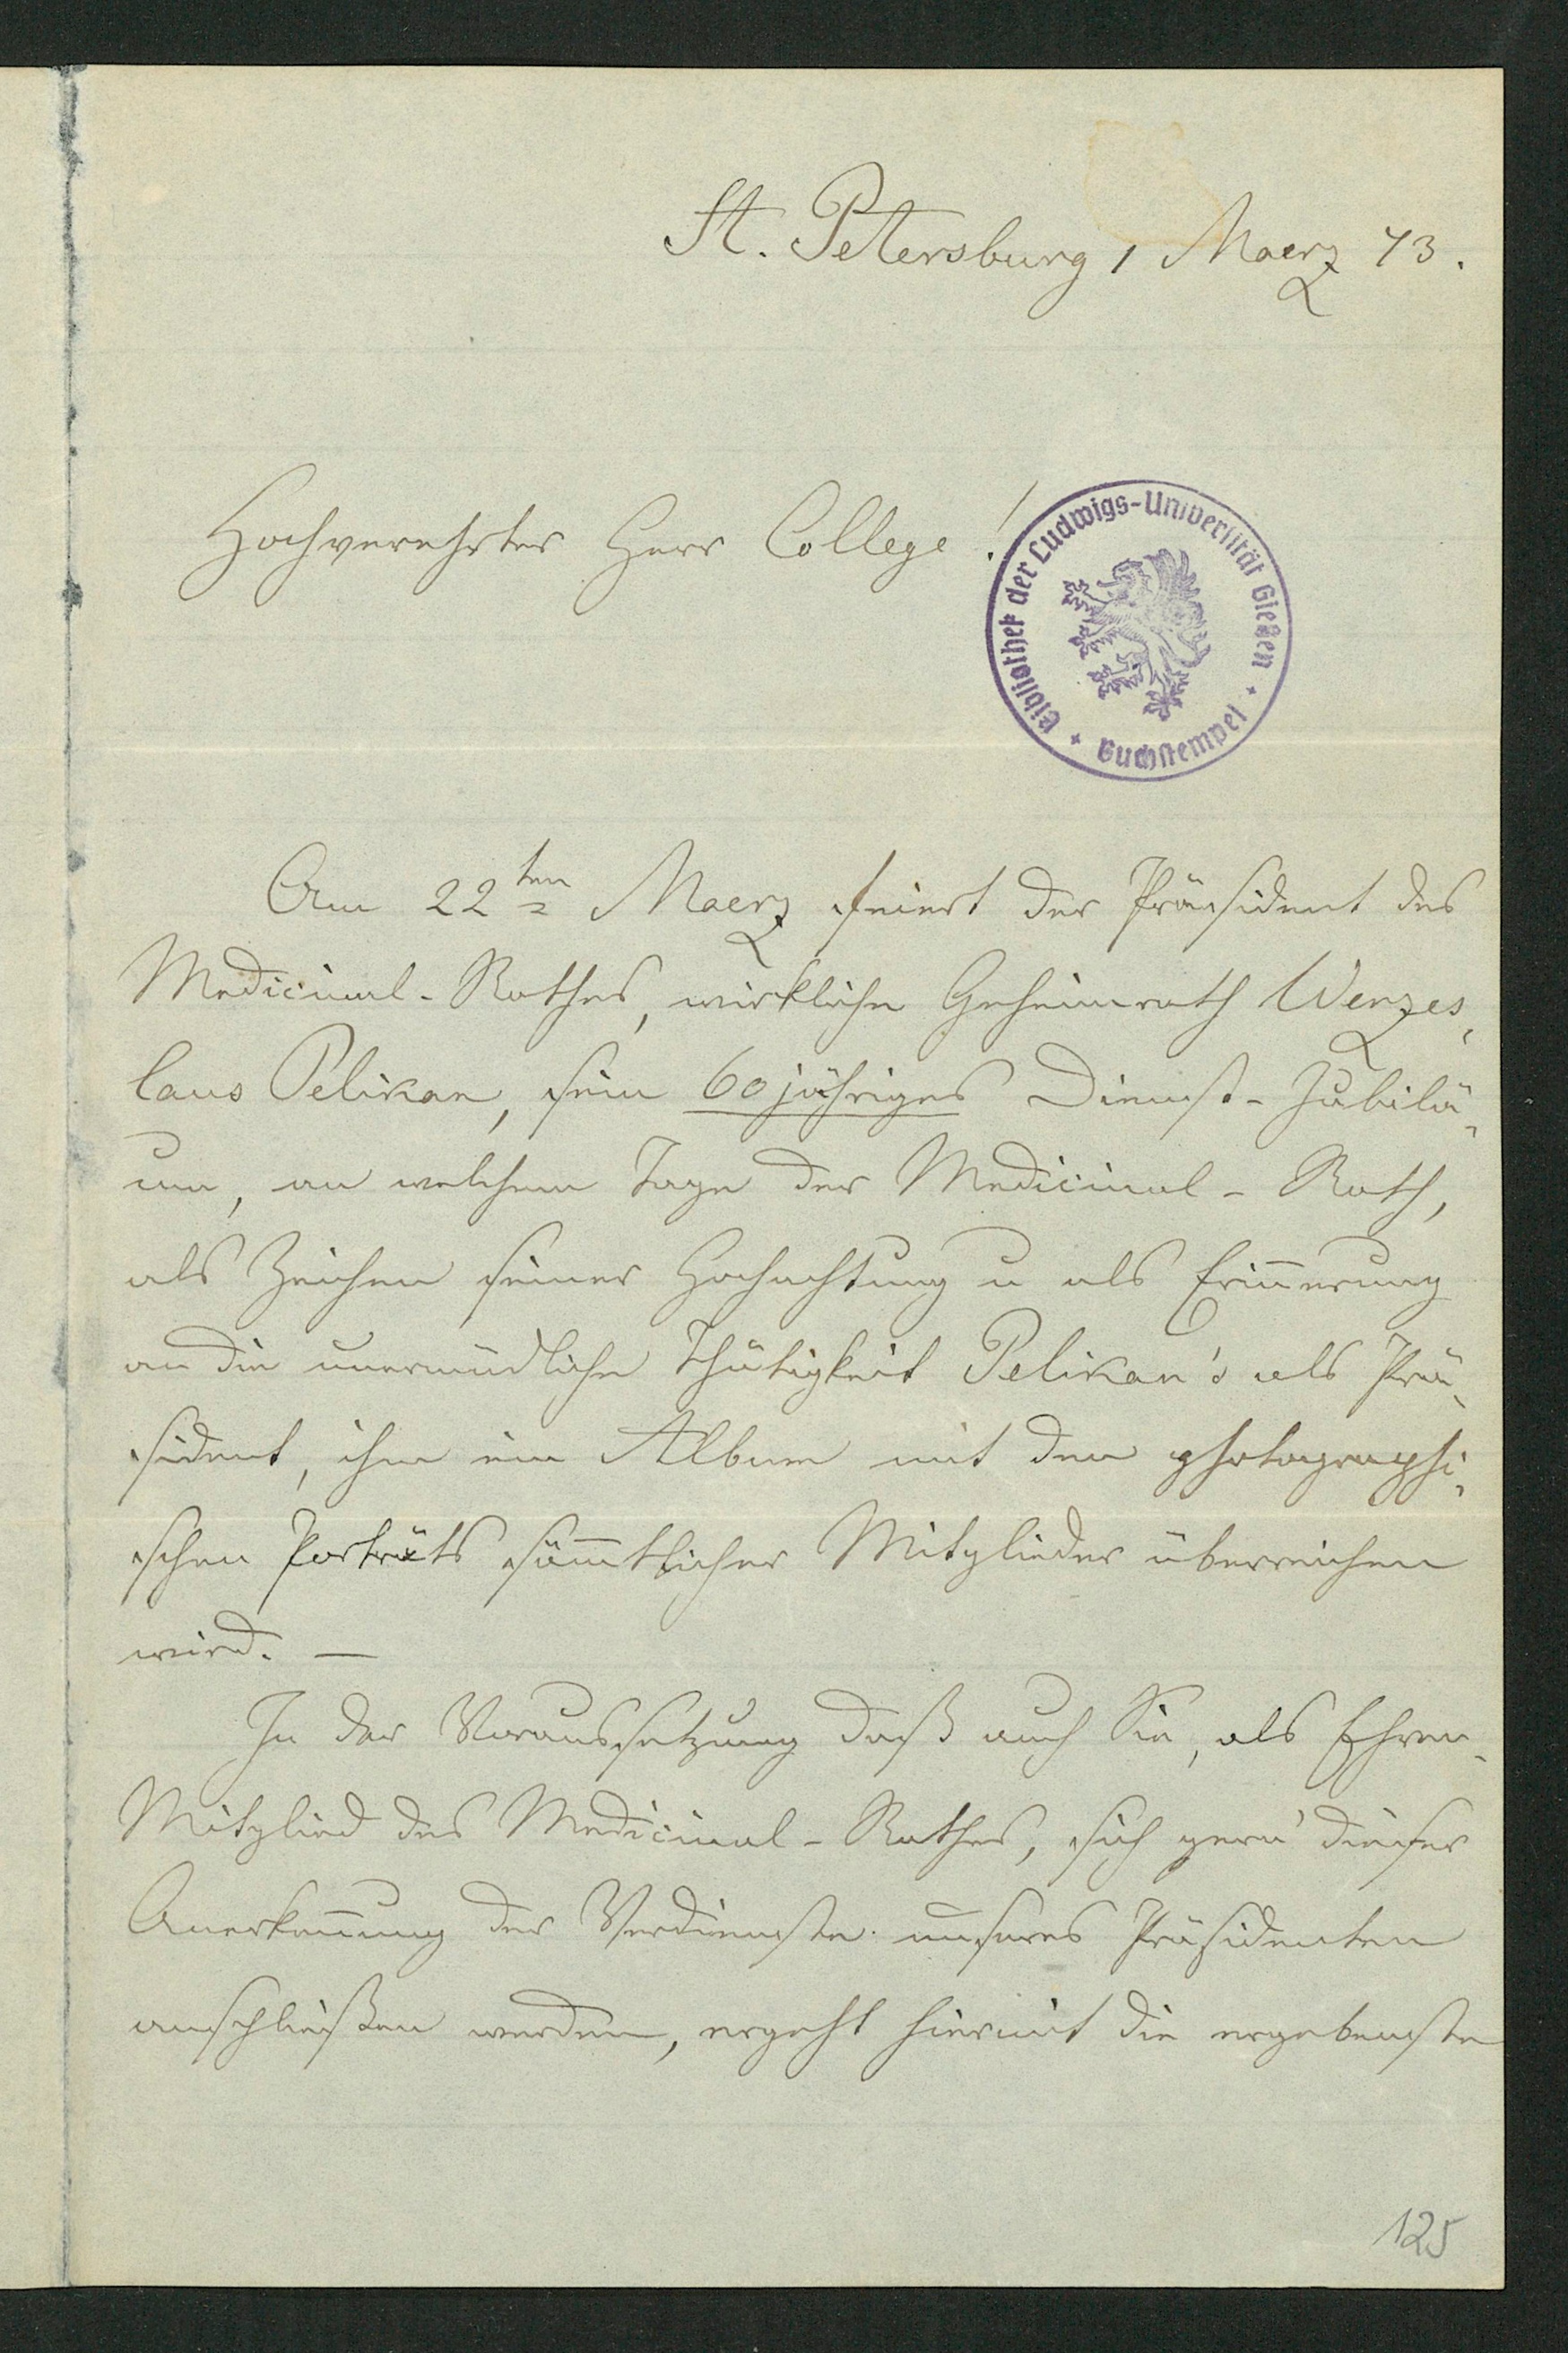 St. Petersburg 1 Maerz 73.
Hochverehrter Herr College!
Bibliothek der Ludwigs-Universität Gießen
Buchstempel
Am 22ten Maerz feiert der Präsident des
Medicinal-Rathes, wirkliche Geheimrath Wenzes,
laus Pelikan, sein 60jähriges Dienst-Jubilä-
um, an welchem Tage der Medicinal-Rath,
als Zeichen seiner Hochachtung u als Erin̄erung
an die unermüdliche Thätigkeit Pelikan's als Prä-
sident, ihm ein Album mit den photographi-
schen Porträts säm̄tlicher Mitglieder überreichen
wird. —
In der Voraussetzung daß auch Sie, als Ehren-
Mitglied des Medicinal-Rathes, sich gern dieser
Anerken̄ung der Verdienste unseres Präsidenten
anschließen werden, ergeht hiermit die ergebenste
125